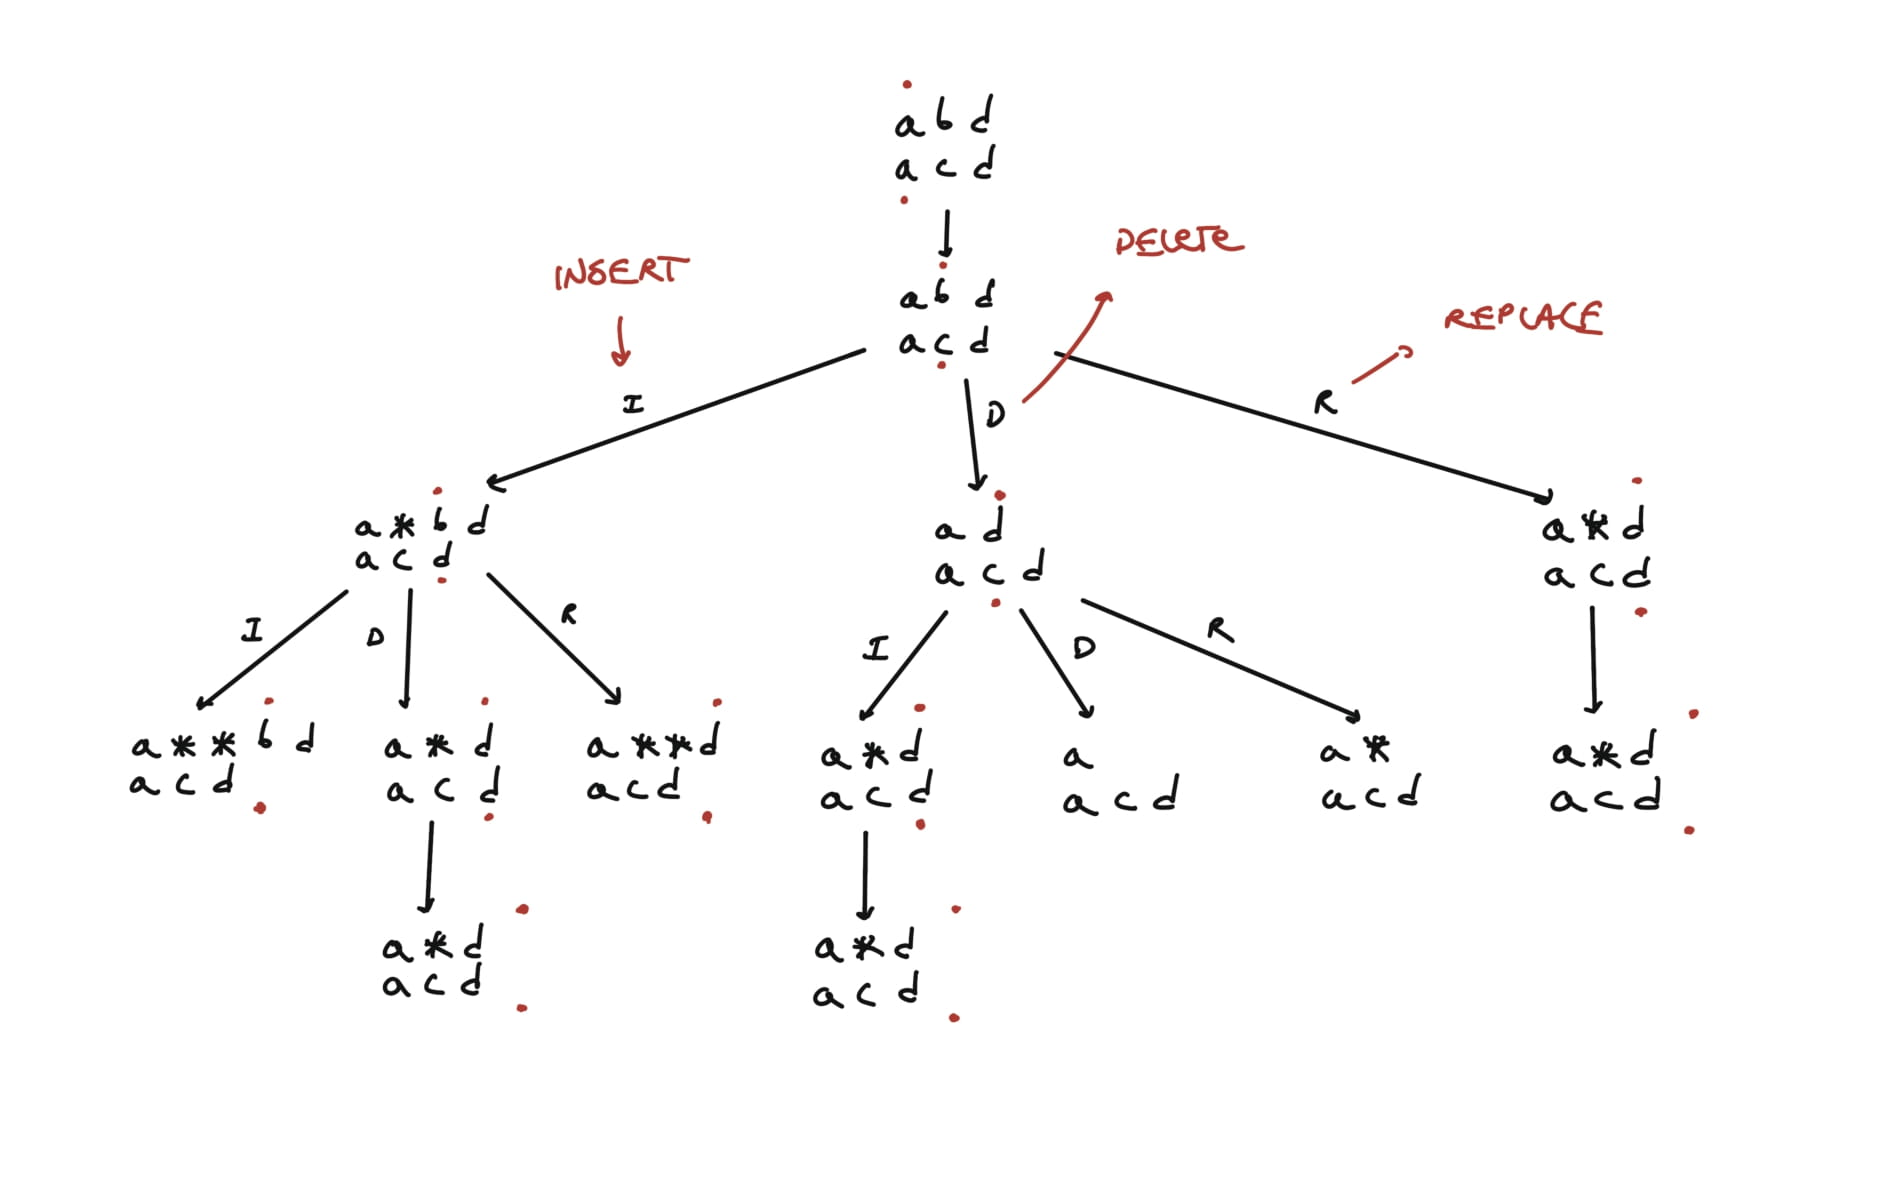 a b d
a c d
DELETE
INSERT
a b d
a c d
REPLACE
I
D
R
a * b d
a c d
a d
a c d
a * d
a c d
I
D
R
I
D
R
a * * b d
a c d
a * d
a c d
a * * d
a c d
a * d
a c d
a
a c d
a *
a c d
a * d
a c d
a * d
a c d
a * d
a c d